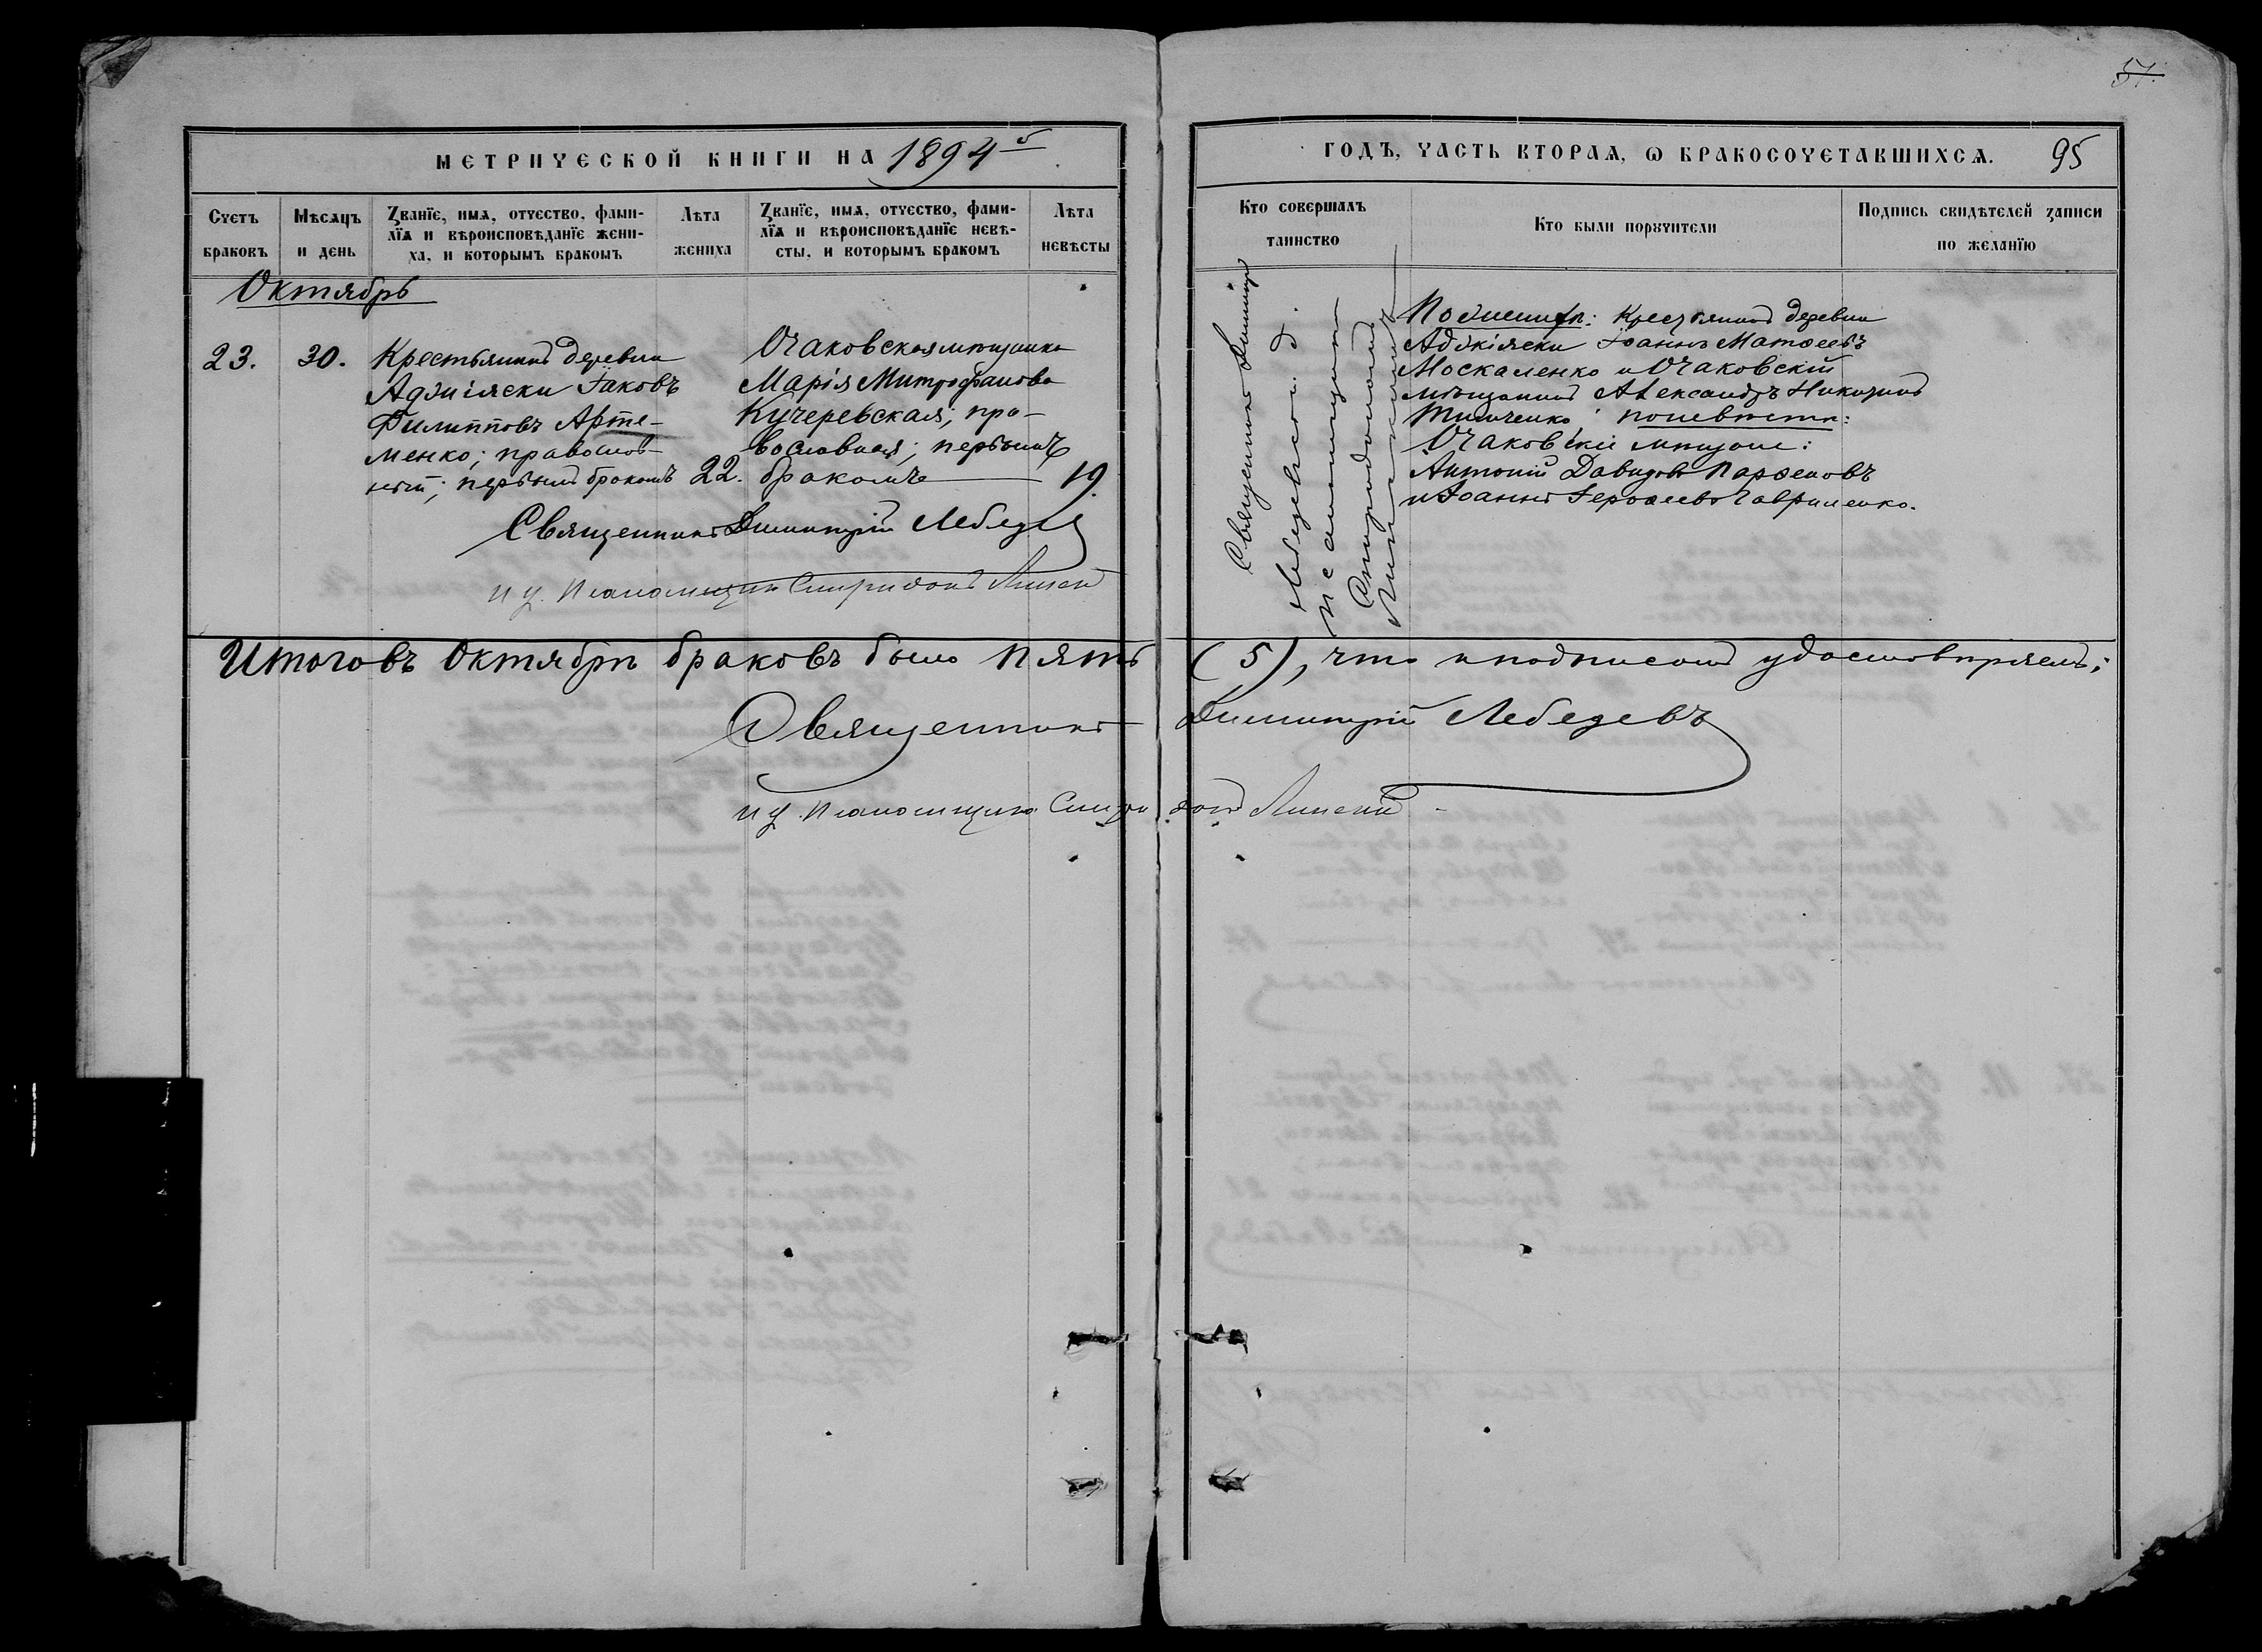 57.
МЕТРИЧЕСКОЙ КНИГИ НА 1894й
ГОДЪ, ЧАСТЬ ВТОРАѦ, Ѡ БРАКОСОЧЕТАВШИХСѦ. 95
Счетъ браковъ
Мѣсѧцъ и день
Званїе, имѧ, отчество, фами-
лїѧ и вѣроисповѣданїе жени-
ха, и которымъ бракомъ
Лѣта жениха
Званїе, имѧ, отчество, фами-
лїѧ и вѣроисповѣданїе невѣ-
сты, и которымъ бракомъ
Лѣта невѣсты
Кто совершалъ таинство
Кто были порꙋчители
Подпись свидѣтелей записи
по желанїю
Октябрь
23.
30.
Крестьянинъ деревни
Аджіяски Іаковъ
Филипповъ Арте-
менко; православ-
ный; первымъ бракомъ
22.
Очаковская мѣщанка
Марія Митрофанова
Кучеревская; пра-
вославная; первымъ
бракомъ
19.
Священникъ Димитрій Лебедев
и д. Псаломщика Спиридонъ
Священникъ Димитрій
Лебедевъ и. д.
псаломщика
Спиридонъ
По женихѣ: Крестьянинъ деревни
Аджіяски Іоаннъ Матѳеевъ
Москаленко и Очаковскій
мѣщанинъ Александръ
Тимченко; по невѣстѣ:
Очаковскіе мѣщане:
Антоній Давидовъ Парѳеновъ
и Іоаннъ Іероѳеевъ Гавриленко.
Итого въ Октябрѣ браковъ было пять (5), что и подписомъ удостовѣряемъ:
Священникъ Димитрій Лебедевъ
и д. Псаломщика Спиридонъ